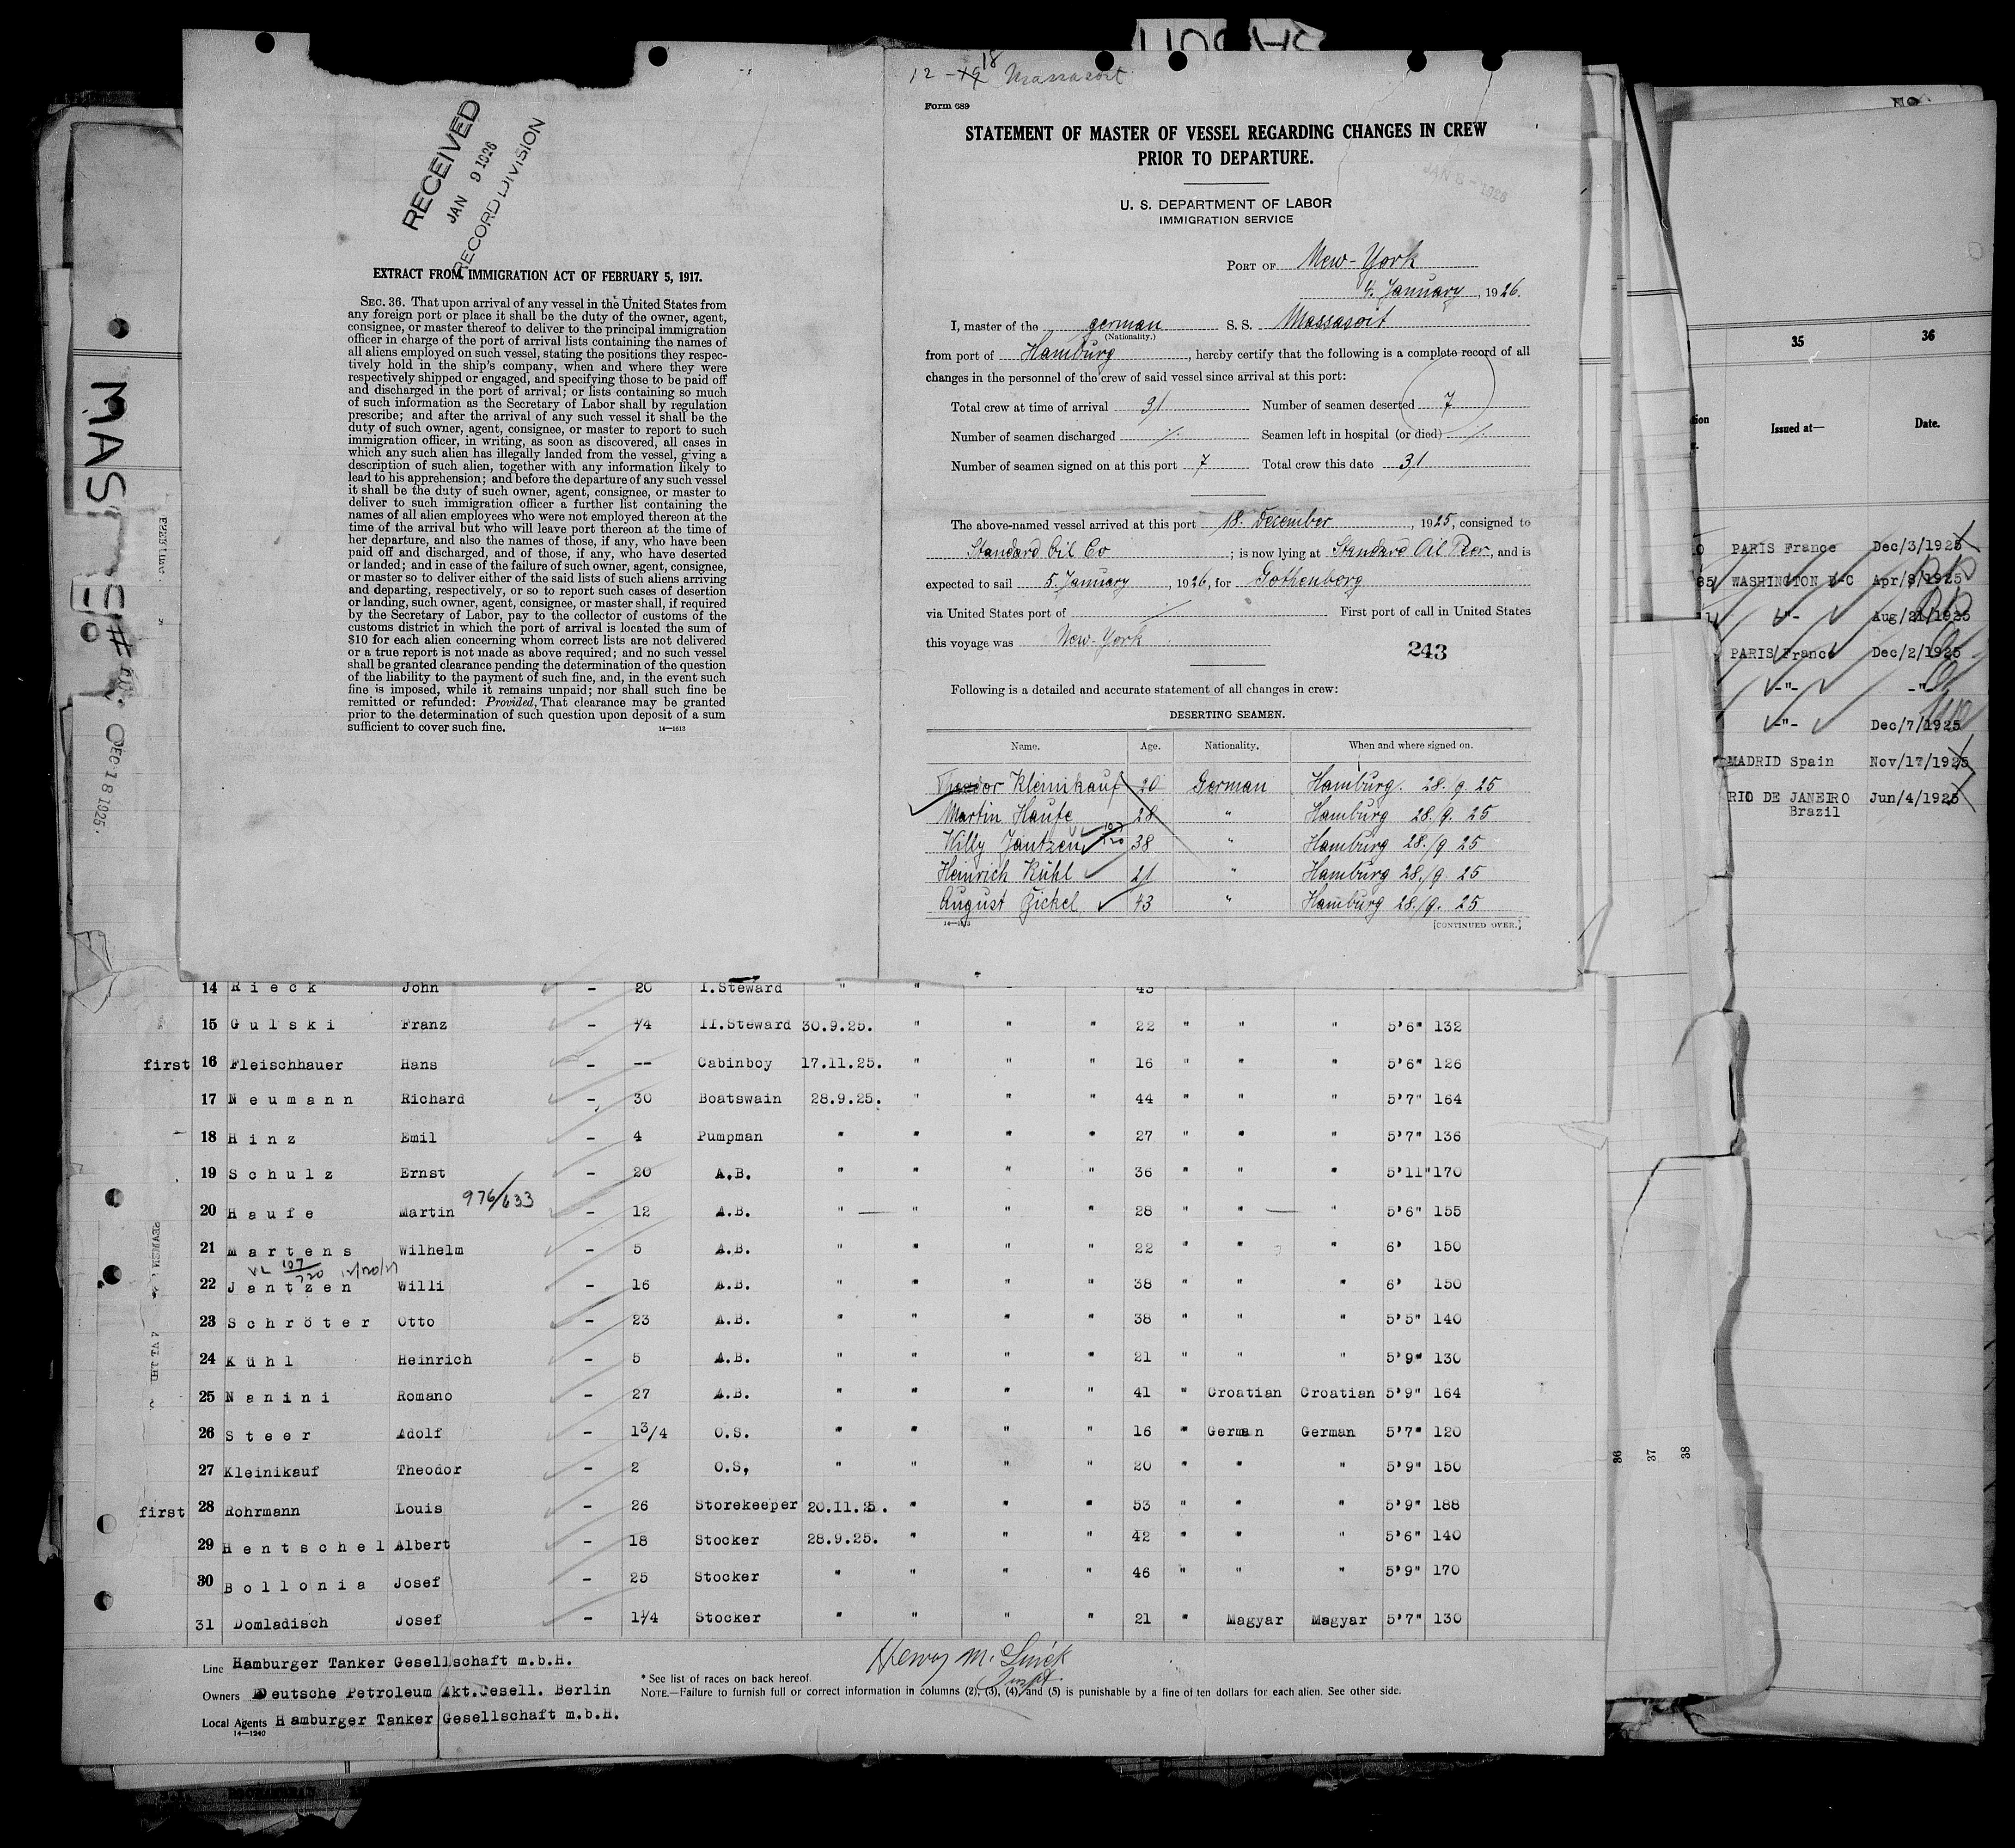 12-19 18 Massasoit
Form 689
STATEMENT OF MASTER OF VESSEL REGARDING CHANGES IN CREW
PRIOR TO DEPARTURE.
JAN 8 - 1926
U. S. DEPARTMENT OF LABOR
IMMIGRATION SERVICE
PORT OF New-York
4. January, 1926.
I, master of the german S. S. Massasoit
(Nationality.)
from port of Hamburg, hereby certify that the following is a complete record of all
changes in the personnel of the crew of said vessel since arrival at this port:
Total crew at time of arrival 31 Number of seamen deserted 7
Number of seamen discharged ./. Seamen left in hospital (or died) ./.
Number of seamen signed on at this port 7 Total crew this date 31
The above-named vessel arrived at this port 18. December, 1925, consigned to
Standard Oil Co; is now lying at Standard Oil Peer, and is
expected to sail 5. January, 1926, for Gothenborg
via United States port of / First port of call in United States
this voyage was New-York.
243
Following is a detailed and accurate statement of all changes in crew:
DESERTING SEAMEN.
Name. Age. Nationality. When and where signed on.
Theodor Kleinikauf 20 German Hamburg. 28. 9. 25
Martin Haufe 28 " Hamburg 28. 9. 25
Willy Jantzen 107/720 38 " Hamburg 28./9 25
Heinrich Kühl 21 " Hamburg 28./9. 25
August Zickel 43 " Hamburg 28./9. 25
[CONTINUED OVER.]
RECEIVED
JAN 9 1926
RECORD DIVISION
EXTRACT FROM IMMIGRATION ACT OF FEBRUARY 5, 1917.
SEC. 36. That upon arrival of any vessel in the United States from
any foreign port or place it shall be the duty of the owner, agent,
consignee, or master thereof to deliver to the principal immigration
officer in charge of the port of arrival lists containing the names of
all aliens employed on such vessel, stating the positions they respec-
tively hold in the ship's company, when and where they were
respectively shipped or engaged, and specifying those to be paid off
and discharged in the port of arrival; or lists containing so much
of such information as the Secretary of Labor shall by regulation
prescribe; and after the arrival of any such vessel it shall be the
duty of such owner, agent, consignee, or master to report to such
immigration officer, in writing, as soon as discovered, all cases in
which any such alien has illegally landed from the vessel, giving a
description of such alien, together with any information likely to
lead to his apprehension; and before the departure of any such vessel
it shall be the duty of such owner, agent, consignee, or master to
deliver to such immigration officer a further list containing the
names of all alien employees who were not employed thereon at the
time of the arrival but who will leave port thereon at the time of
her departure, and also the names of those, if any, who have been
paid off and discharged, and of those, if any, who have deserted
or landed; and in case of the failure of such owner, agent, consignee,
or master so to deliver either of the said lists of such aliens arriving
and departing, respectively, or so to report such cases of desertion
or landing, such owner, agent, consignee, or master shall, if required
by the Secretary of Labor, pay to the collector of customs of the
customs district in which the port of arrival is located the sum of
$10 for each alien concerning whom correct lists are not delivered
or a true report is not made as above required; and no such vessel
shall be granted clearance pending the determination of the question
of the liability to the payment of such fine, and, in the event such
fine is imposed, while it remains unpaid; nor shall such fine be
remitted or refunded: Provided, That clearance may be granted
prior to the determination of such question upon deposit of a sum
sufficient to cover such fine.
14—1613
DEC 18 1925.
35 36
Issued at— Date.
PARIS France Dec/3/1925
WASHINGTON D-C Apr/8/1925
-"- Aug/21/1925
PARIS/France Dec/2/1925
-"- -"-
-"- Dec/7/1925
MADRID Spain Nov/17/1925
RIO DE JANEIRO Jun/4/1925
Brazil
36 37 38
14 Rieck John - 20 I.Steward " " " " 45
15 Gulski Franz - 1/4 II.Steward 30.9.25. " " " 22 " " " 5'6" 132
first 16 Fleischhauer Hans - -- Cabinboy 17.11.25. " " " 16 " " " 5'6" 126
17 Neumann Richard - 30 Boatswain 28.9.25. " " " 44 " " " 5'7" 164
18 Hinz Emil - 4 Pumpman " " " " 27 " " " 5'7" 136
19 Schulz Ernst - 20 A.B. " " " " 36 " " " 5'11" 170
976/633
20 Haufe Martin - 12 A.B. " " " " 28 " " " 5'6" 155
21 Martens Wilhelm - 5 A.B. " " " " 22 " " " 6' 150
VL 107/720 12/20/27
22 Jantzen Willi - 16 A.B. " " " " 38 " " " 6' 150
23 Schröter Otto - 23 A.B. " " " " 38 " " " 5'5" 140
24 Kühl Heinrich - 5 A.B. " " " " 21 " " " 5'9" 130
25 Nanini Romano - 27 A.B. " " " " 41 " Croatian Croatian 5'9" 164
26 Steer Adolf - 1 3/4 O.S. " " " " 16 " German German 5'7" 120
27 Kleinikauf Theodor - 2 O.S, " " " " 20 " " " 5'9" 150
first 28 Rohrmann Louis - 26 Storekeeper 20.11.25. " " " 53 " " " 5'9" 188
29 Hentschel Albert - 18 Stocker 28.9.25. " " " 42 " " " 5'6" 140
30 Bollonia Josef - 25 Stocker " " " " 46 " " " 5'9" 170
31 Domladisch Josef - 1 1/4 Stocker " " " " 21 " Magyar Magyar 5'7" 130
Line Hamburger Tanker Gesellschaft m.b.H.
Owners Deutsche Petroleum Akt.Gesell. Berlin
Local Agents Hamburger Tanker Gesellschaft m.b.H.
14—1240
* See list of races on back hereof.
NOTE.—Failure to furnish full or correct information in columns (2), (3), (4), and (5) is punishable by a fine of ten dollars for each alien. See other side.